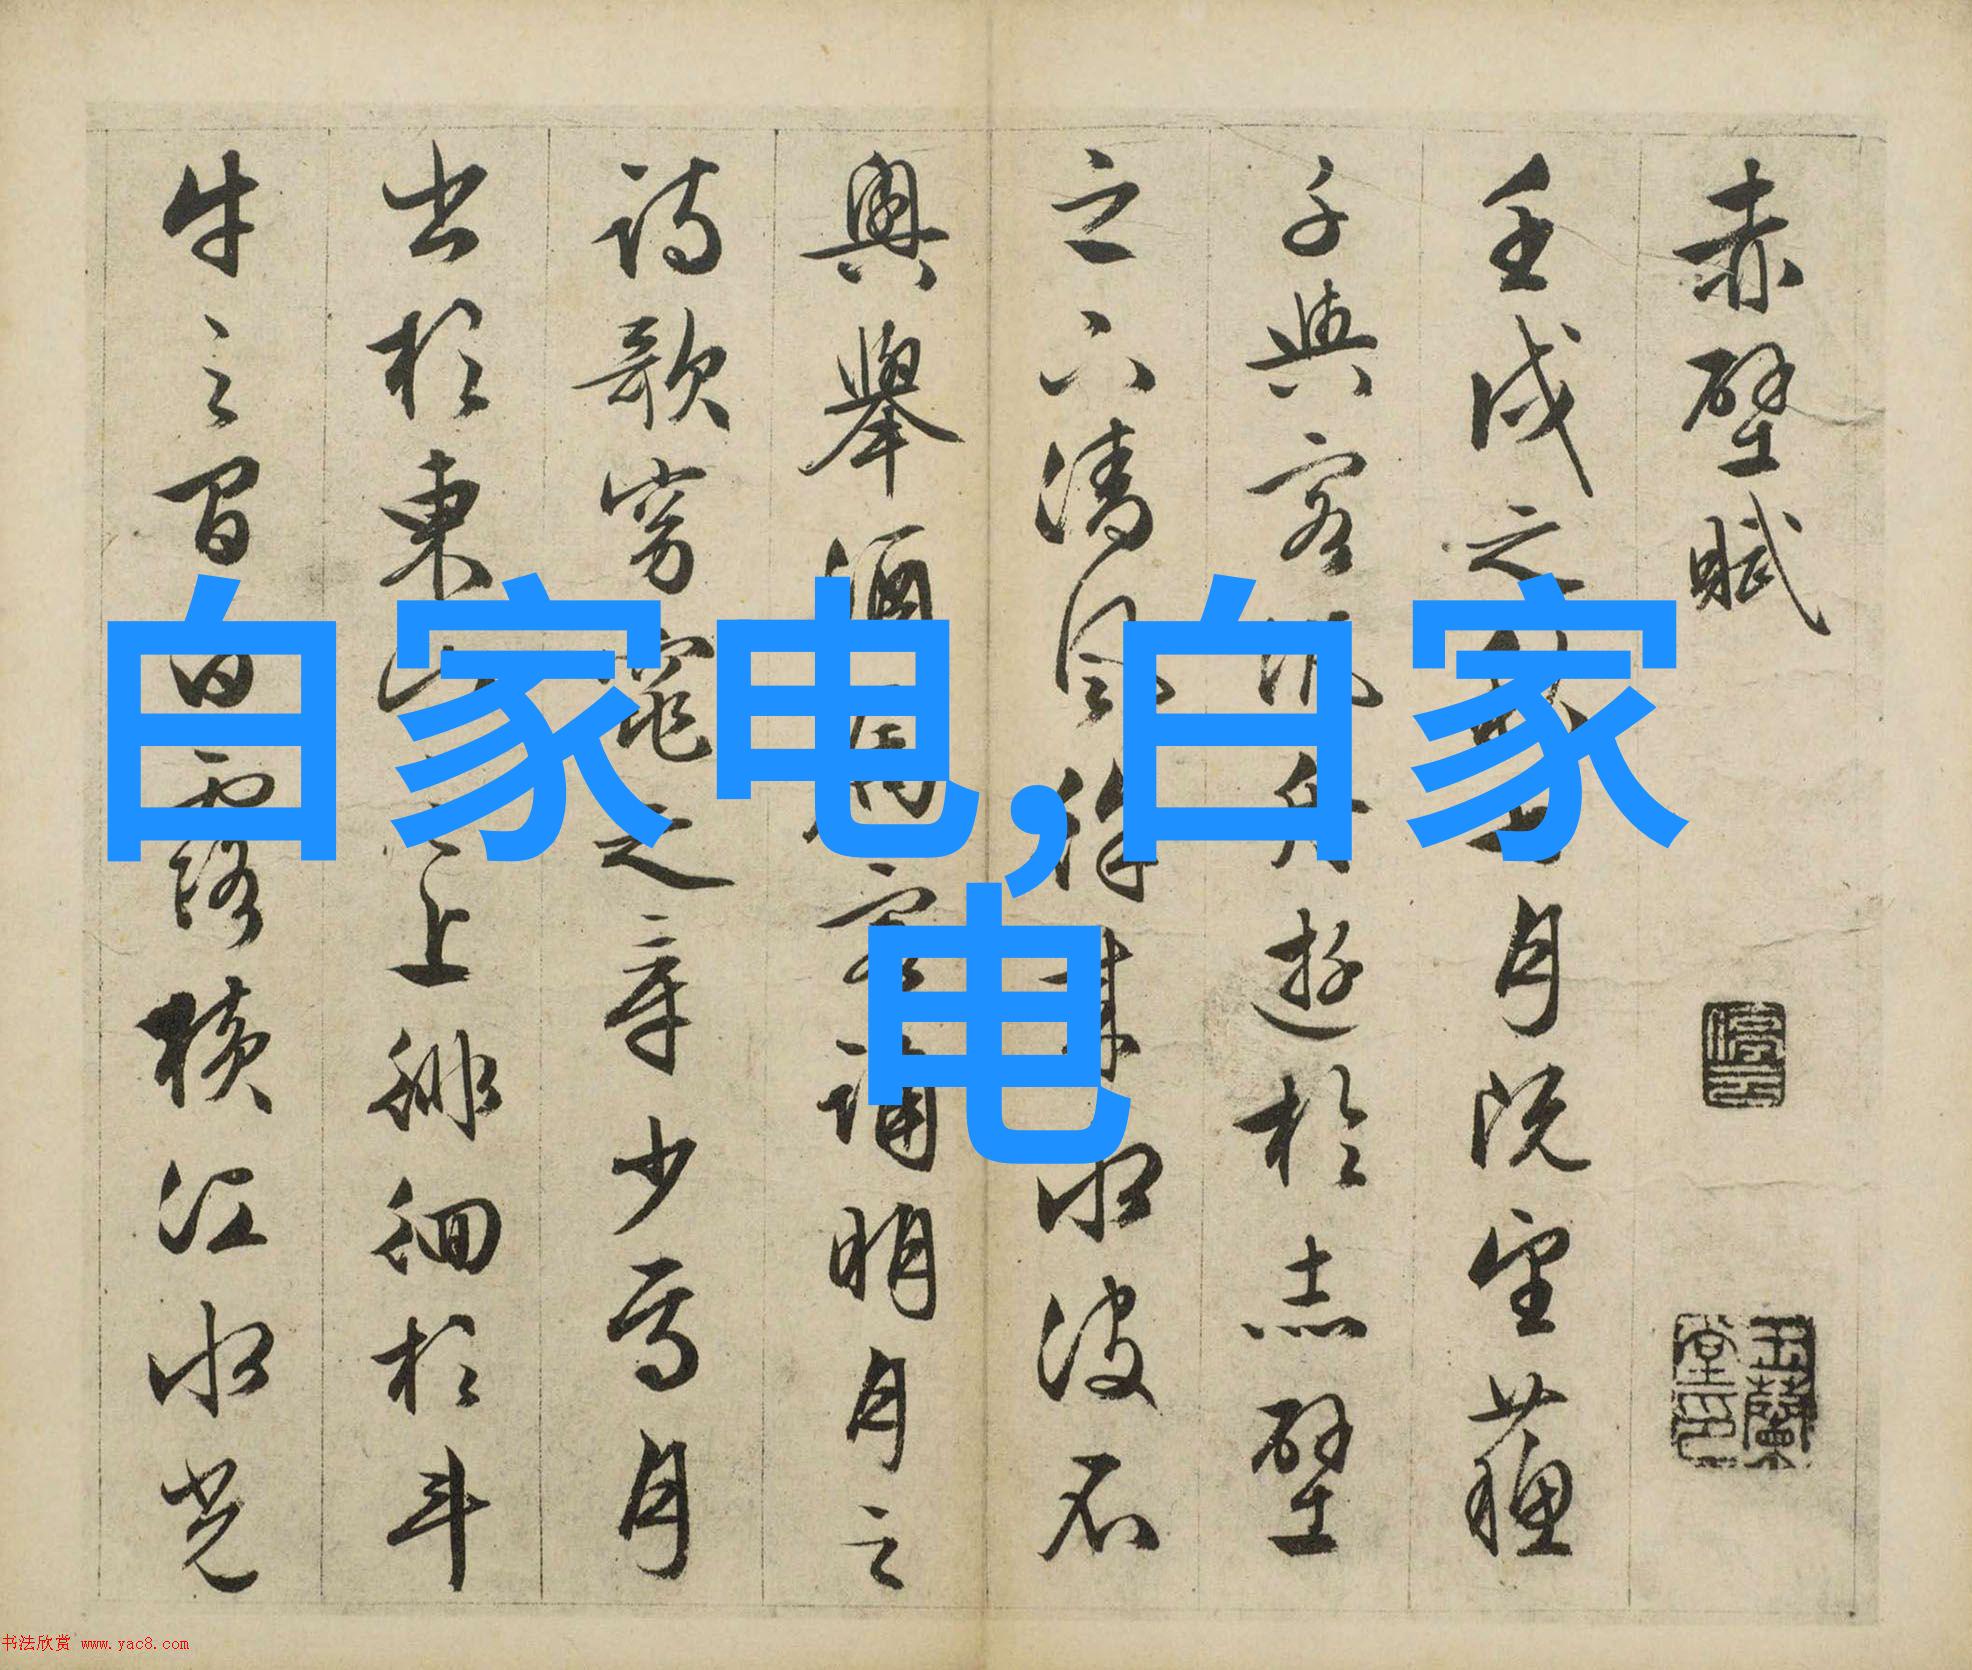 赤壁賦
壬戌之秋七月既望蘇
子與客泛舟遊於赤壁
之下清風徐來水波不
興舉酒屬客誦明月之
詩歌窈窕之章少焉月
出於東山之上徘徊於斗
牛之間白露橫江水光
停雲
玉蘭堂印
白家电,白家
电
书法欣赏 www.yac8.com